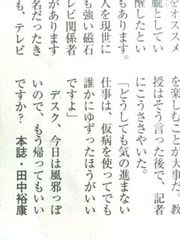 をオススメ
臓としてい
醒したとい
もあります。
人を現世に
も強い磁石
レビ関係者
名だったき
も、テレビ
を楽しむことが大事だ。教
授はそう言った後で、記者
にこうささやいた。
「どうしても気の進まない
仕事は、仮病を使ってでも
誰かにゆずったほうがいい
ですよ」
デスク、今日は風邪っぽ
いので、もう帰ってもいい
ですか？　本誌・田中裕康